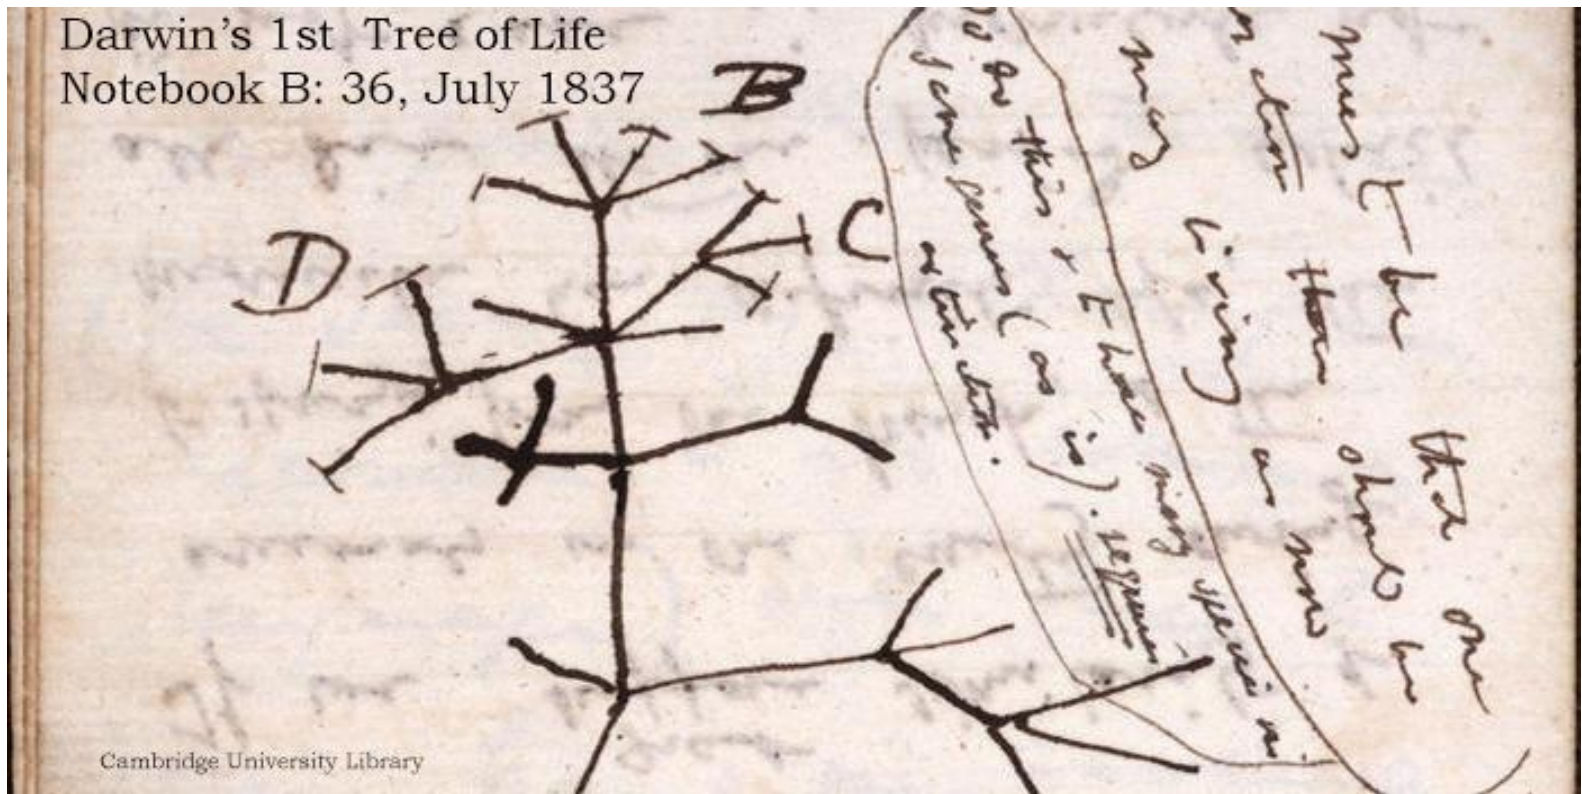 Darwin's 1st Tree of Life
Notebook B: 36, July 1837
B
C
D
must be that one
then should be
living as now
may
To do this & to have many species in
same genus (as is). requires
extinction.
Cambridge University Library